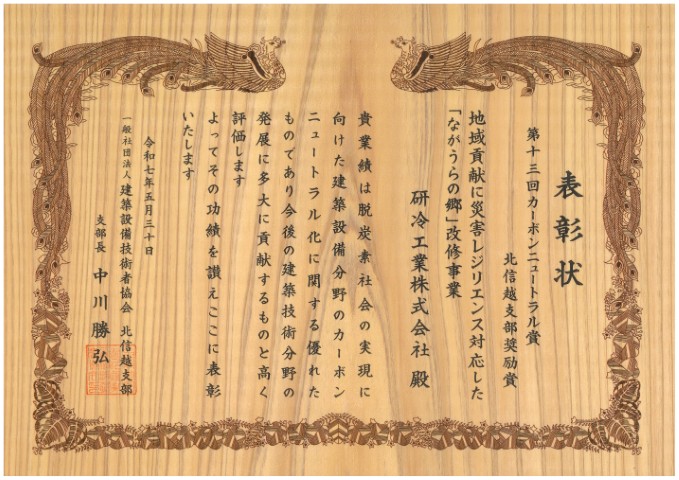 表彰状
第十三回カーボンニュートラル賞
北信越支部奨励賞
地域貢献に災害レジリエンス対応した
「ながうらの郷」改修事業
研冷工業株式会社 殿
貴業績は脱炭素社会の実現に
向けた建築設備分野のカーボン
ニュートラル化に関する優れた
ものであり今後の建築技術分野の
発展に多大に貢献するものと高く
評価します
よってその功績を讃えここに表彰
いたします
令和七年五月三十日
一般社団法人 建築設備技術者協会 北信越支部
支部長 中川勝弘